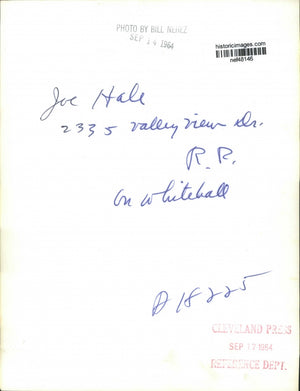 PHOTO BY BILL NEHEZ
SEP 14 1964
historicimages.com
nef48146
Joe Hale
2335 Valleyview Dr.
R. R.
on Whitehall
D 18225
CLEVELAND PRESS
SEP 17 1964
REFERENCE DEPT.